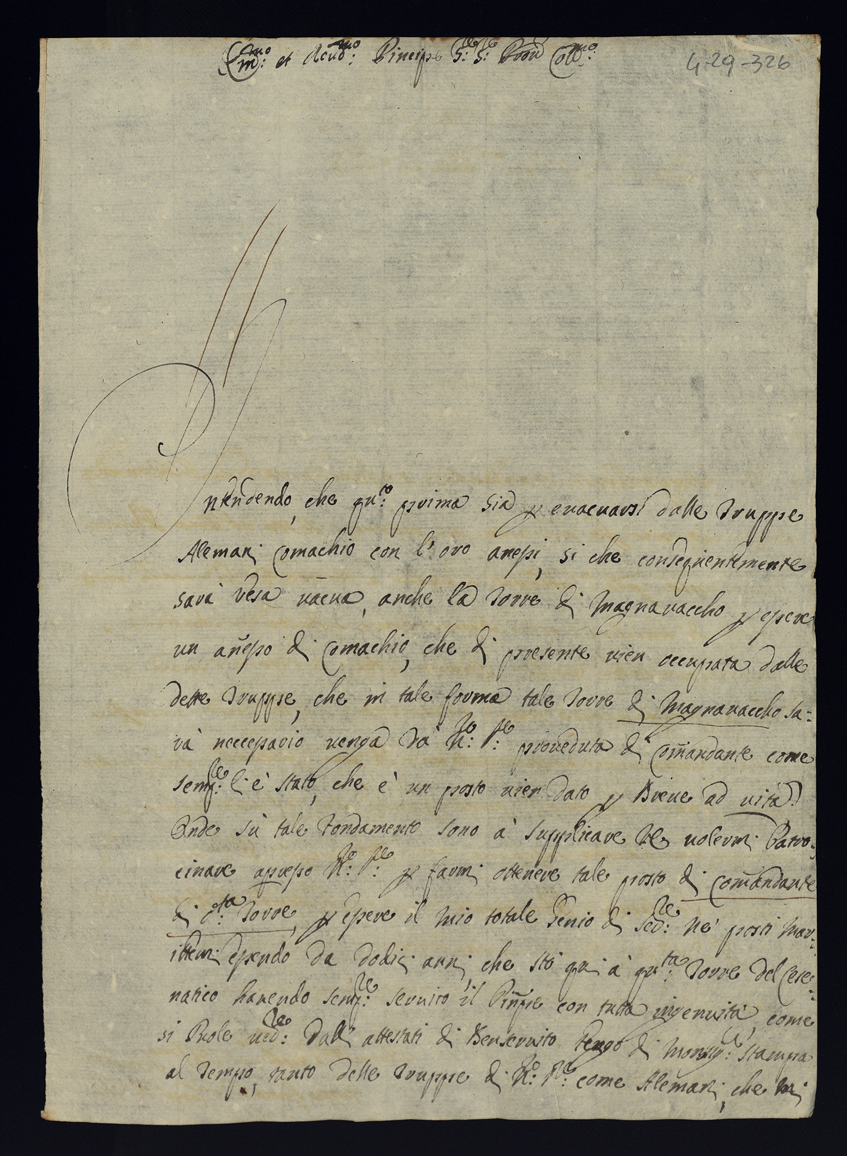 Em:mo et Reud:mo Principe S:re S:re Pron Coll:mo
4-29-326
Intendendo, che qu:to prima sia p euacuarsi dalle Truppe
Alemani Comachio con l'oro anessi, si che conseguentemente
sarà resa uacua, anche la Torre di Magnauaccho p essere
un anesso di Comachio, che di presente uien occupata dalle
dette Truppe, che in tale forma tale Torre di Magnauaccho sa:
rà neccessario uenga da N:ro S:re proueduta di Comandante come
semp:re li è stato, che è un posto uien dato p Breue ad uita
Onde sù tale fondamento sono à supplicare Ve uolermi Patro:
cinare appresso N:ro S:re p farmi ottenere tale posto di Comandante
di d:ta Torre, p essere il mio totale Genio di sed:re ne' posti Mar:
ittimi essendo da dodici anni che stò qui à qu:ta Torre del Cese:
natico hauendo semp:re seruito il Pnpe con tutta ingenuità, come
si Puole ued:re dalli attestati di Benseruito tengo di Monsig:r Stampa
al Tempo, tanto delle Truppe di N:ro S:re come Alemani, che mi